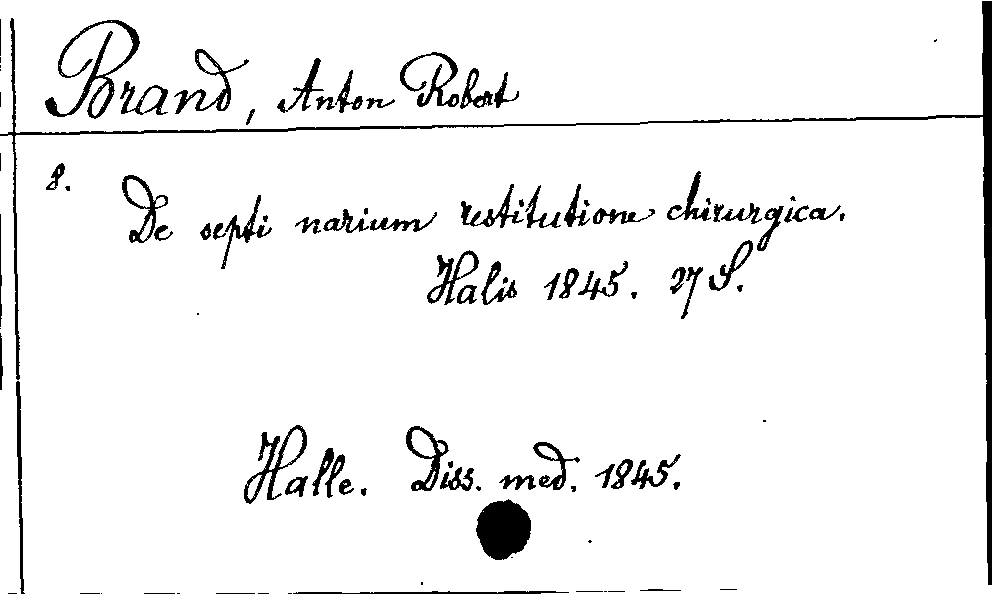 Brand, Anton Robert
8. De septi narium restitutione chirurgica.
Halis 1845. 27 S.
Halle. Diss. med. 1845.